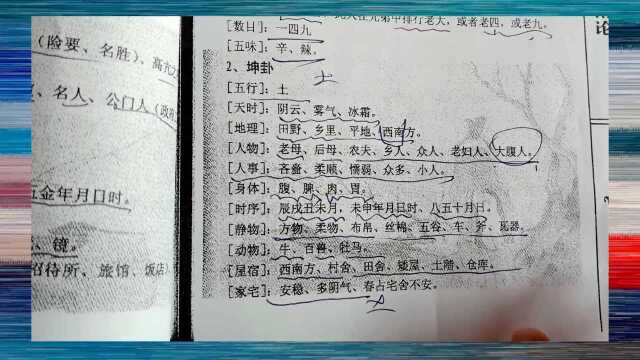 （险要、名胜），高亢之
名人、公门人（政府
五金年月日时。
镜。
招待所、旅馆、饭店
论
此人在兄弟中排行老大，或者老四，或老九。
[数目]：一四九
[五味]：辛、辣。
2、坤卦
土
[五行]：土
[天时]：阴云、雾气、冰霜。
[地理]：田野、乡里、平地、西南方。
[人物]：老母、后母、农夫、乡人、众人、老妇人、大腹人。
[人事]：吝啬、柔顺、懦弱、众多、小人。
[身体]：腹、脾、肉、胃。
[时序]：辰戌丑未月，未申年月日时、八五十月日。
[静物]：方物、柔物、布帛、丝棉、五谷、车、斧、瓦器。
[动物]：牛、百兽、牡马。
[屋宿]：西南方、村舍、田舍、矮屋、土阶、仓库。
[家宅]：安稳、多阴气、春占宅舍不安。